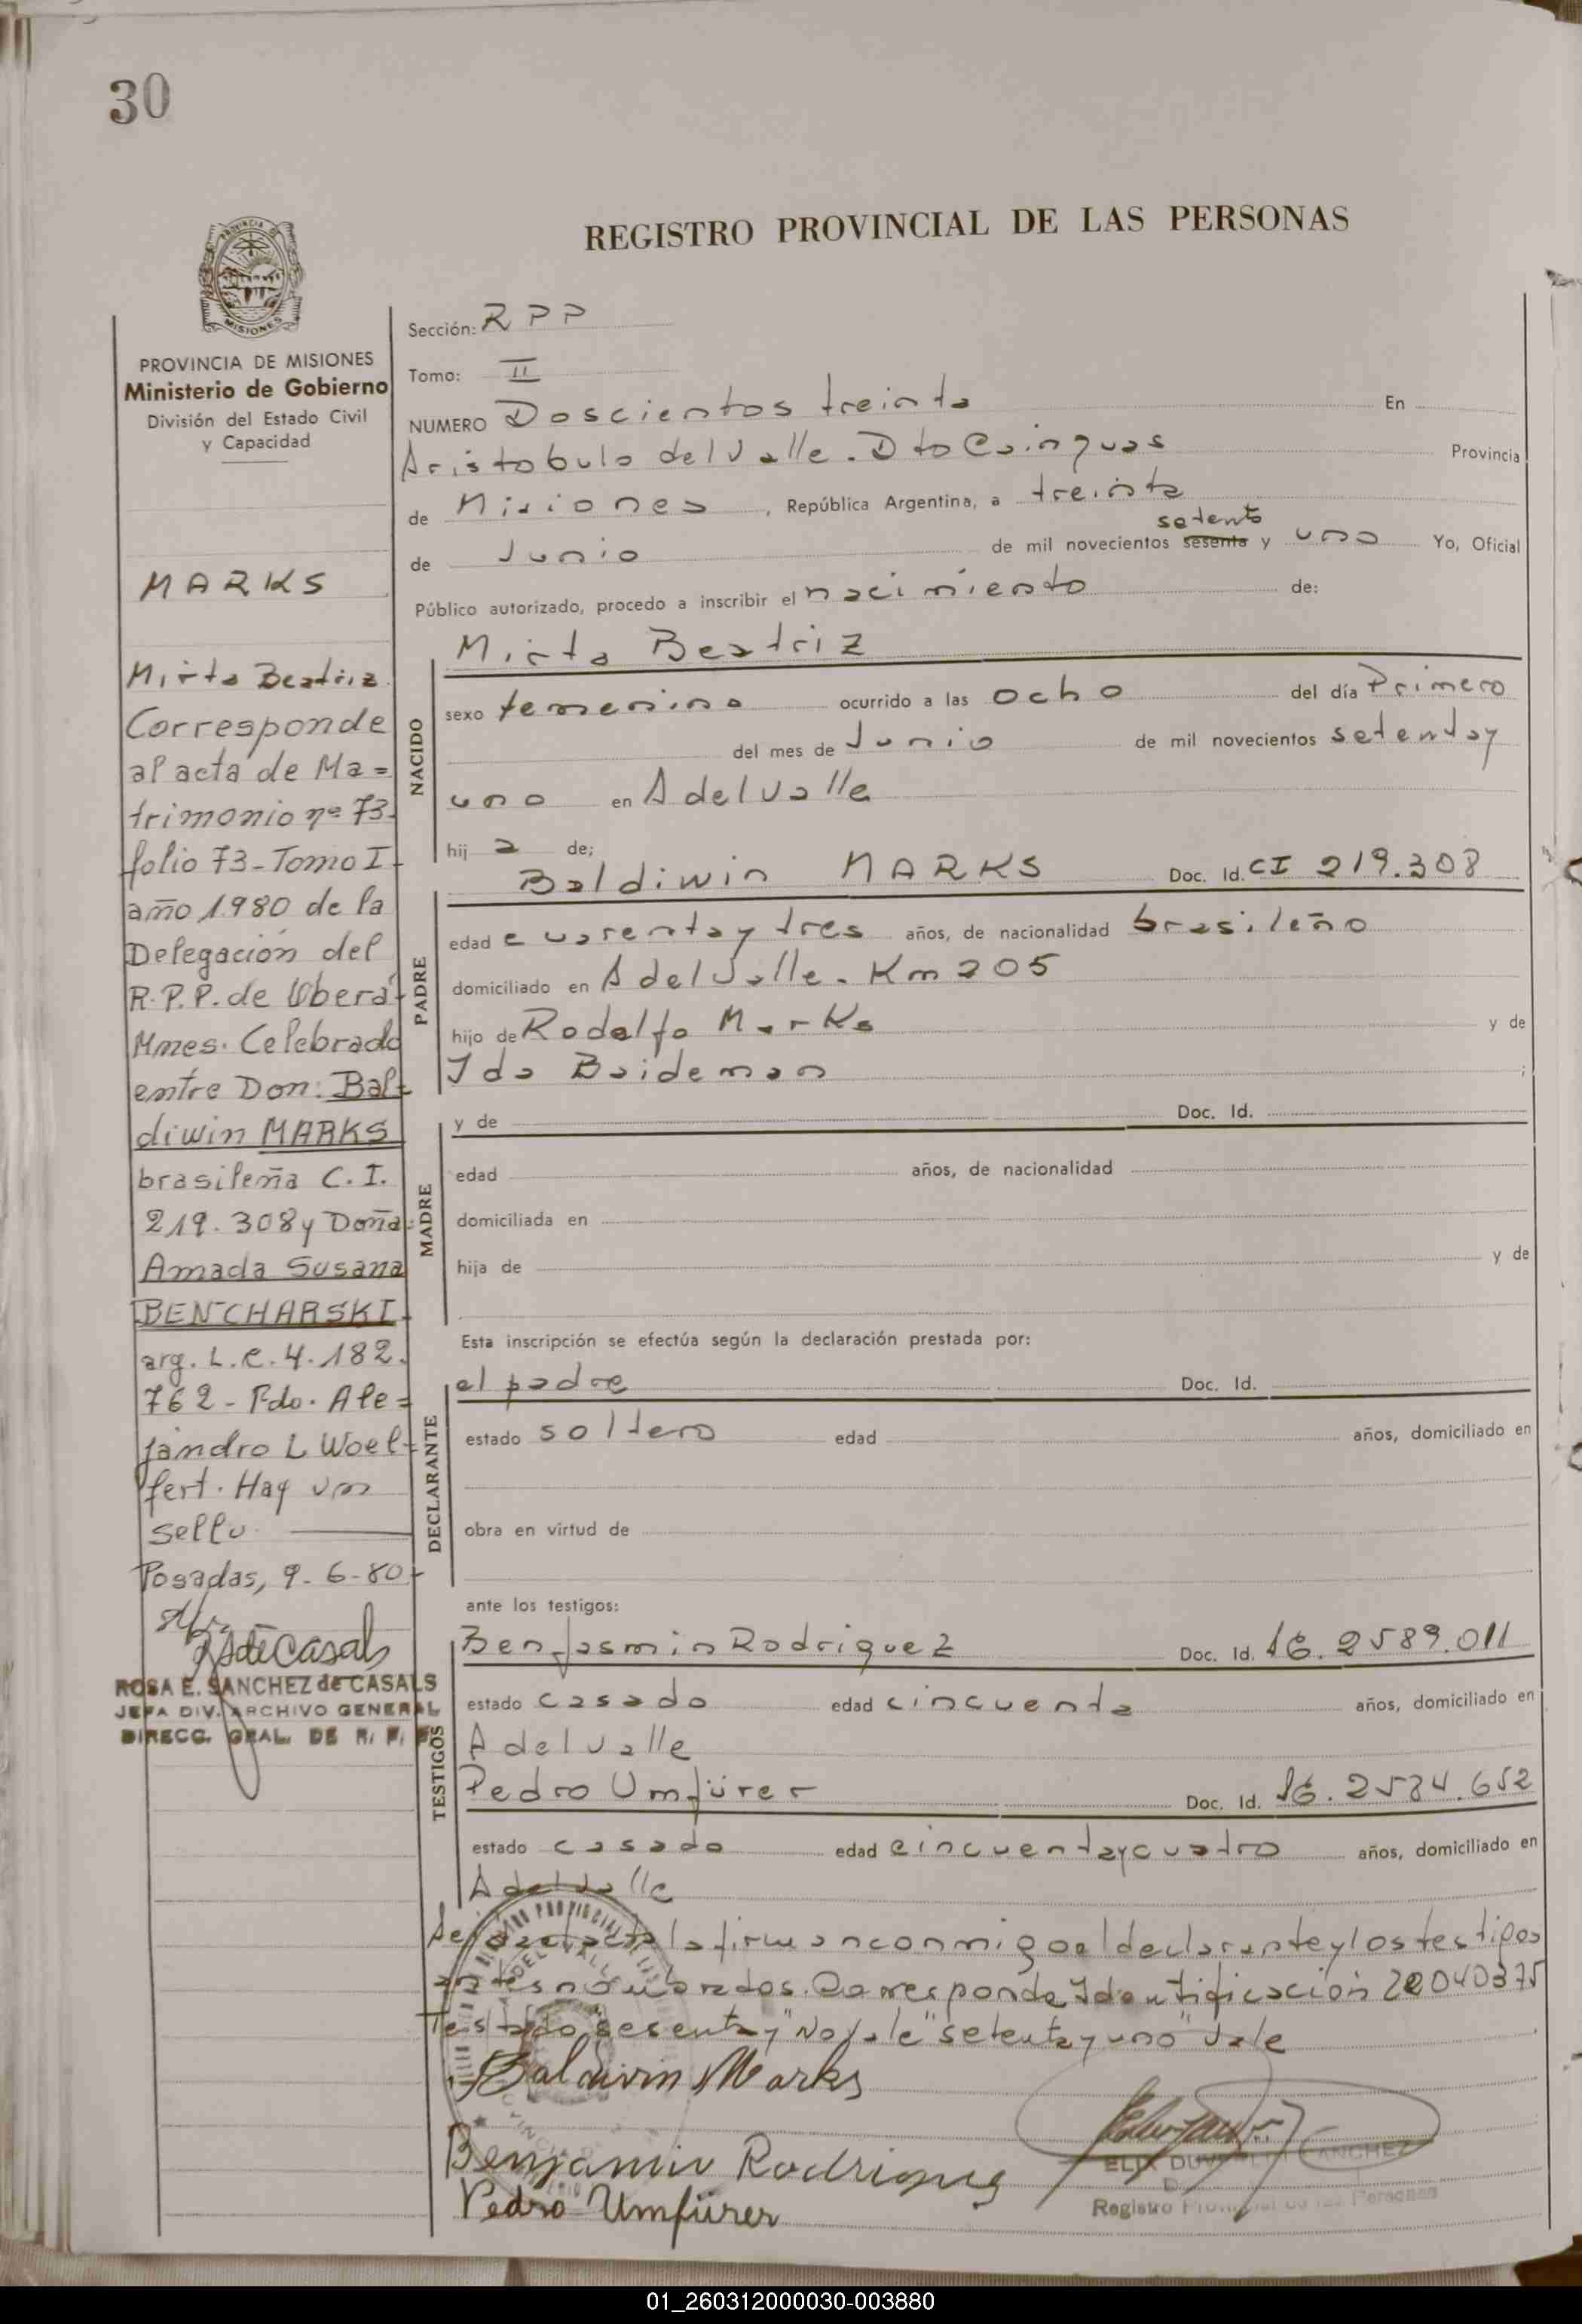 30
REGISTRO PROVINCIAL DE LAS PERSONAS
PROVINCIA DE MISIONES
Ministerio de Gobierno
División del Estado Civil
y Capacidad
MARKS
Mirta Beatriz
Corresponde
al acta de Ma=
trimonio nº 73-
folio 73-Tomo I-
año 1980 de la
Delegación del
R.P.P. de Oberá-
Mnes. Celebrado
entre Don: Bal=
diwin MARKS
brasileña C.I.
219.308 y Doña
Amada Susana
BENCHARSKI
arg. L.C. 4.182.
762 - Fdo. Ale=
jandro L Woel-
fert. Hay un
sello.
Posadas, 9-6-80-
ROSA E. SANCHEZ de CASALS
JEFA DIV. ARCHIVO GENERAL
DIRECC. GRAL. DE R. P. P.
Sección: RPP
Tomo: II
NUMERO Doscientos treinta En
Aristobulo del Valle. Dto Cainguas Provincia
de Misiones, República Argentina, a treinta
setenta
de Junio de mil novecientos sesenta y uno Yo, Oficial
Público autorizado, procedo a inscribir el nacimiento de:
NACIDO
Mirta Beatriz
sexo femenino ocurrido a las ocho del día Primero
del mes de Junio de mil novecientos setenta y
uno en A del Valle
hij a de;
PADRE
Baldiwin MARKS Doc. Id. CI 219.308
edad cuarenta y tres años, de nacionalidad brasileño
domiciliado en A del Valle. Km 205
hijo de Rodolfo Marks y de
Ida Baideman ;
MADRE
y de Doc. Id.
edad años, de nacionalidad
domiciliada en
hija de y de
Esta inscripción se efectúa según la declaración prestada por:
DECLARANTE
el padre Doc. Id.
estado soltero edad años, domiciliado en
obra en virtud de
ante los testigos:
TESTIGOS
Benjasmin Rodriguez Doc. Id. 2589.011
estado casado edad cincuenta años, domiciliado en
A del Valle
Pedro Umfürer Doc. Id. 2584.652
estado casado edad cincuenta y cuatro años, domiciliado en
A del Valle
la firman conmigo el declarante y los testigos
antes nombrados. Corresponde Identificación 22040375
Testado "sesenta y" No vale "setenta y uno" Vale
Baldiwin Marks
Benjamin Rodrigues
Pedro Umfürer
SANCHEZ
Registro Provincial de las Personas
01_260312000030-003880